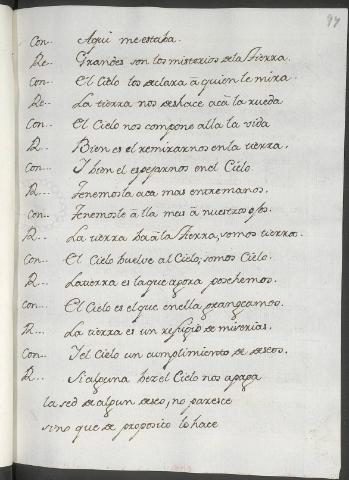 97
Con... Aqui me estaba.
Re... Grandes son los misterios de la tierra.
Con... El Cielo los declara à quien le mira.
Re... La tierra nos deshace acà la rueda
Con... El Cielo nos compone alla la vida
R... Bien es el remirarnos en la tierra.
Con... Y bien el espejarnos en el Cielo.
R... Tenemosla aca mas entre manos.
Con... Tenemosle à lla mas à nuestros ojos.
R... La tierra ba à la tierra; somos tierra.
Con... El Cielo buelve al Cielo; somos Cielo.
R... La tierra es la que agora posehemos.
Con... El Cielo es el que en ella grangeamos.
R... La tierra es un refugio de miserias.
Con... Y el Cielo un cumplimiento de deseos.
R... Si alguna bez el Cielo nos apaga
la sed de algun deseo, no paresce
sino que de proposito lo hace